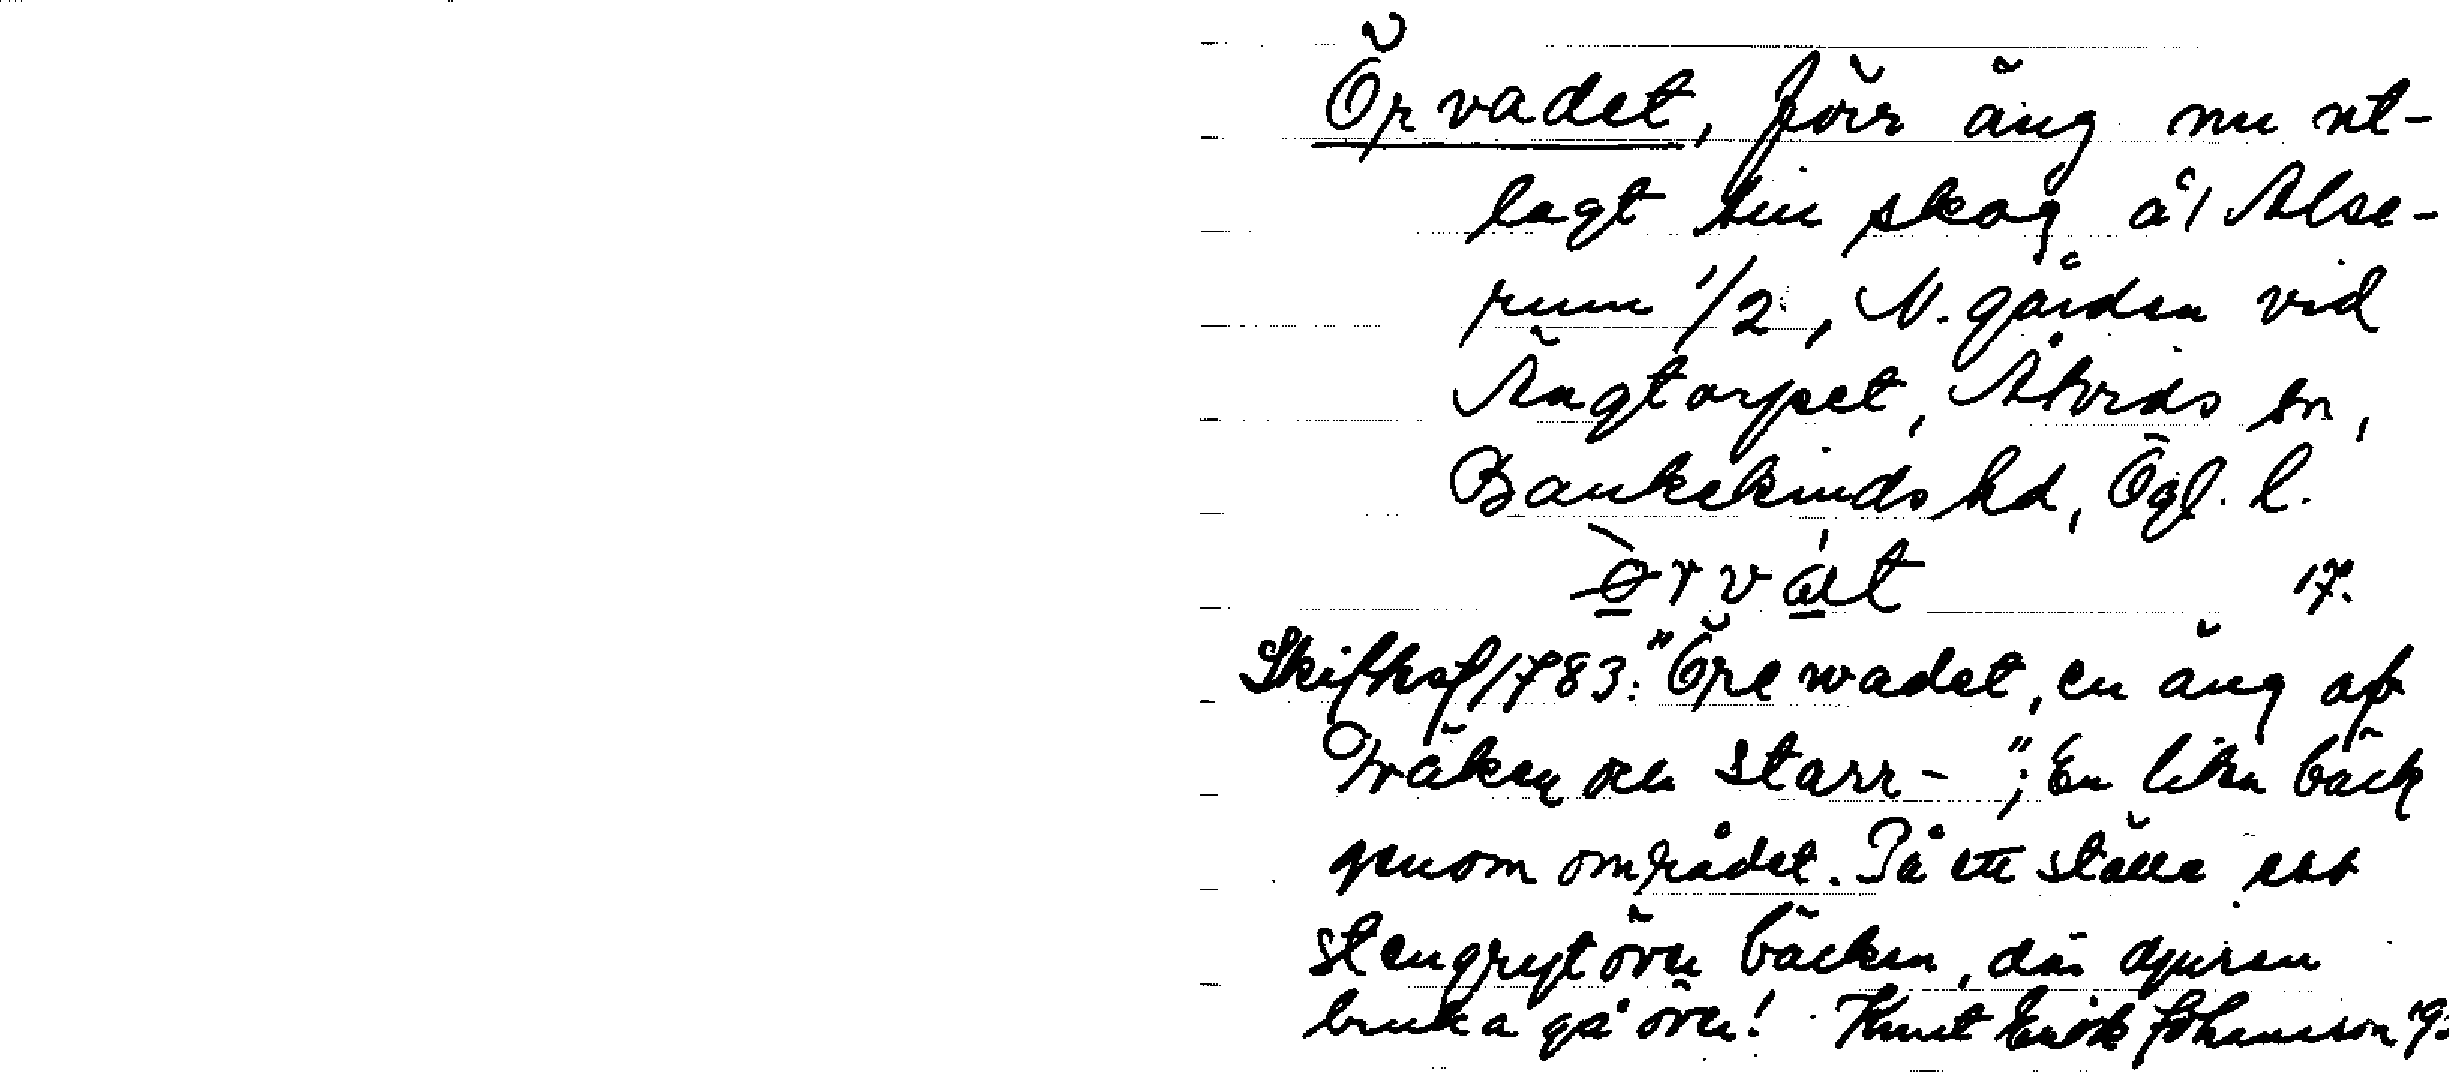 Örvadet, förr äng nu ut-
lagt till skog å/ Alse-
rum 1/2, N. gården vid
Ängtorpet, Åtvids sn,
Bankekinds hd, Ögl. l.
17.
1783: "Öre wadet, en äng af
Fräken och Starr-"; En liten bäck
genom området. På ett ställe ett
stengryt över bäcken, där djuren
bruka gå över! Knut Johansson